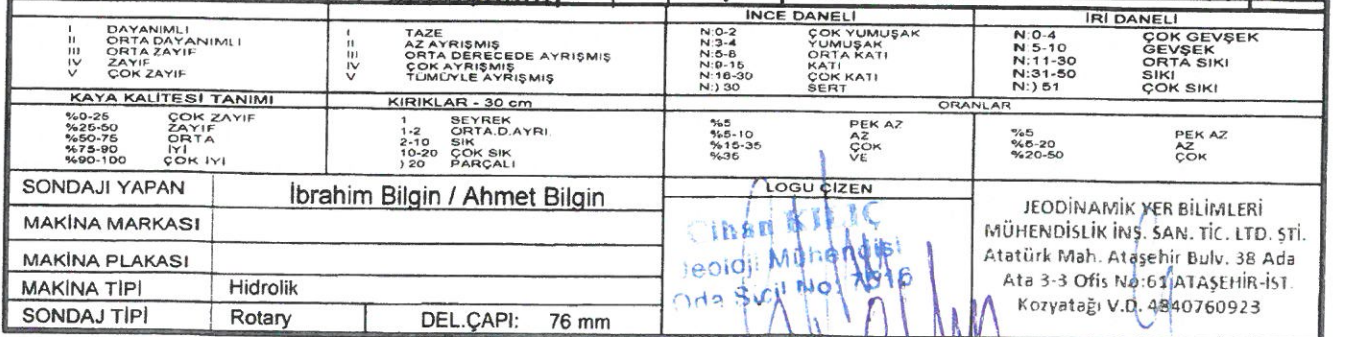 İNCE DANELİ
İRİ DANELİ
I DAYANIMLI
II ORTA DAYANIMLI
III ORTA ZAYIF
IV ZAYIF
V ÇOK ZAYIF
I TAZE
II AZ AYRIŞMIŞ
III ORTA DERECEDE AYRIŞMIŞ
IV ÇOK AYRIŞMIŞ
V TÜMÜYLE AYRIŞMIŞ
N:0-2 ÇOK YUMUŞAK
N:3-4 YUMUŞAK
N:5-8 ORTA KATI
N:9-15 KATI
N:16-30 ÇOK KATI
N:) 30 SERT
N:0-4 ÇOK GEVŞEK
N:5-10 GEVŞEK
N:11-30 ORTA SIKI
N:31-50 SIKI
N:) 51 ÇOK SIKI
KAYA KALİTESİ TANIMI
KIRIKLAR - 30 cm
ORANLAR
%0-25 ÇOK ZAYIF
%25-50 ZAYIF
%50-75 ORTA
%75-90 İYİ
%90-100 ÇOK İYİ
1 SEYREK
1-2 ORTA.D.AYRI.
2-10 SIK
10-20 ÇOK SIK
) 20 PARÇALI
%5 PEK AZ
%5-10 AZ
%15-35 ÇOK
%35 VE
%5 PEK AZ
%5-20 AZ
%20-50 ÇOK
SONDAJI YAPAN İbrahim Bilgin / Ahmet Bilgin
MAKİNA MARKASI
MAKİNA PLAKASI
MAKİNA TİPİ Hidrolik
SONDAJ TİPİ Rotary DEL.ÇAPI: 76 mm
LOGU ÇİZEN
Cihan KILIÇ
Jeoloji Mühendisi
Oda Sicil No: 7916
JEODİNAMİK YER BİLİMLERİ
MÜHENDİSLİK İNŞ. SAN. TİC. LTD. ŞTİ.
Atatürk Mah. Ataşehir Bulv. 38 Ada
Ata 3-3 Ofis No:61 ATAŞEHİR-İST.
Kozyatağı V.D. 4840760923